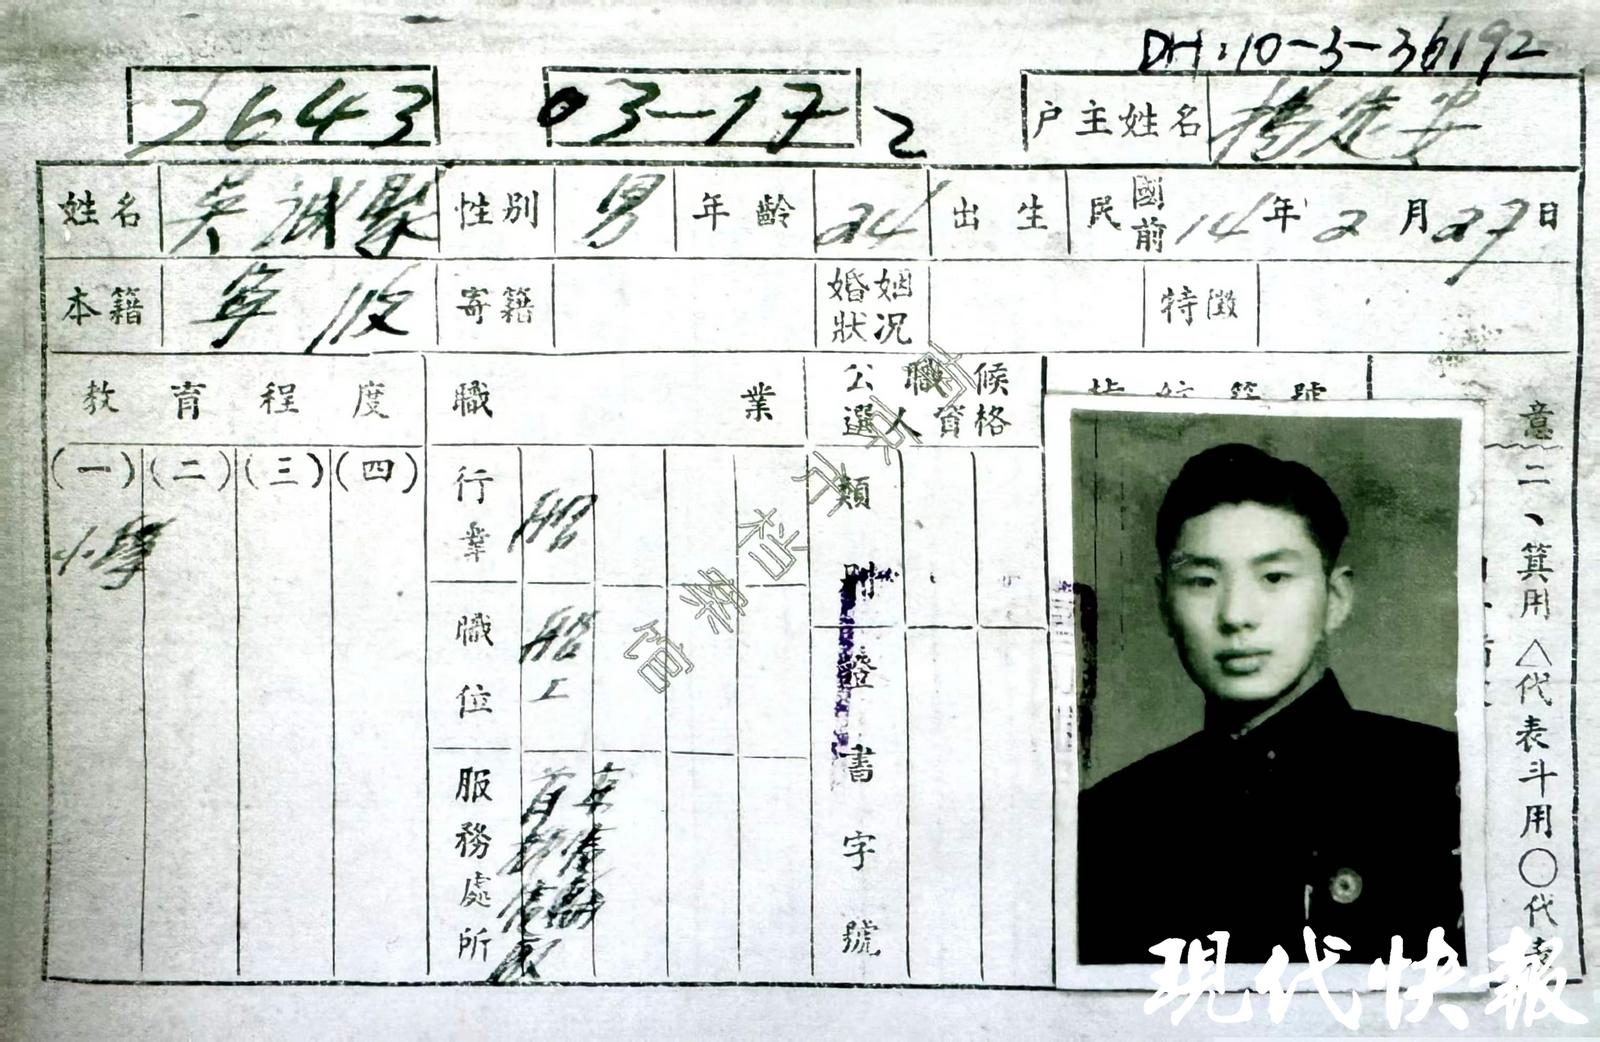 DH:10-3-36192
2643 03-17 2 户主姓名 楊志安
姓名 吴誠聚 性別 男 年齡 24 出生 民國前 14年 2月 27日
本籍 寧波 寄籍 婚姻狀况 特徵
教育程度 職業 公職候選人資格
(一) (二) (三) (四) 行業 船 類別
小學
職位 船工 證書字號
服務處所 首京
意二、箕用△代表斗用○代表
南京市檔案館
現代快報